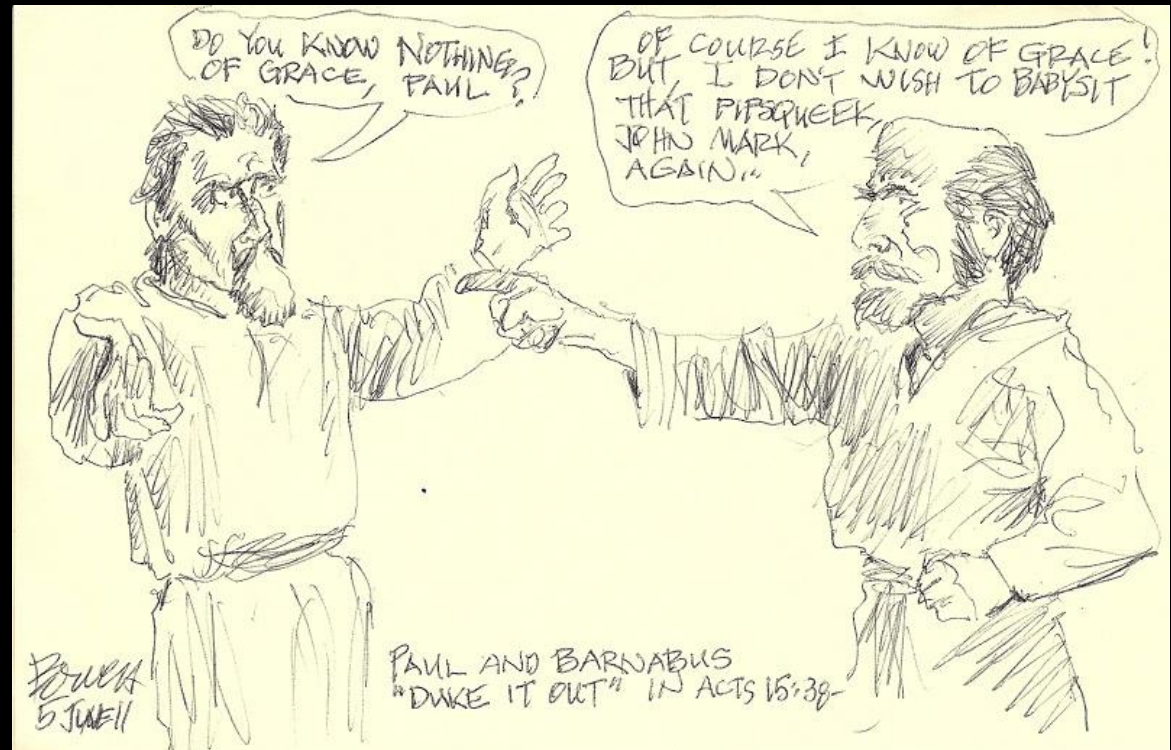 DO YOU KNOW NOTHING
OF GRACE, PAUL?
OF COURSE I KNOW OF GRACE!
BUT, I DON'T WISH TO BABYSIT
THAT PIPSQUEEK,
JOHN MARK,
AGAIN...
PAUL AND BARNABUS
"DUKE IT OUT" IN ACTS 15:38-
5 JUNE 11